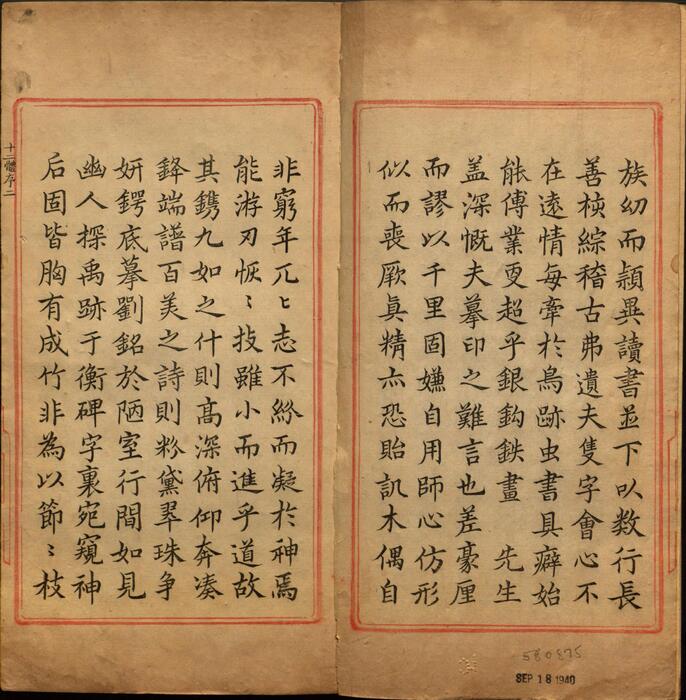 族㓜而頴異讀書並下㕥数行長
善楨綜稽古弗遺夫隻字會心不
在遠情每牽於鳥跡虫書具癖始
能傳業更超乎銀鈎鉄畫 先生
盖深慨夫摹印之難言也差豪厘
而謬以千里固嫌自用師心仿形
似而喪厥真精亦恐貽訊木偶自
非窮年兀〻志不紛而凝於神焉
能游刃恢〻技雖小而進乎道故
其鐫九如之什則高深俯仰奔凑
鋒端譜百美之詩則粉黛翠珠争
妍鍔底摹劉銘於陋室行間如見
幽人探禹跡于衡碑字裏宛窺神
后固皆胸有成竹非為以節〻枝
十二體序 二
580875
SEP 18 1940